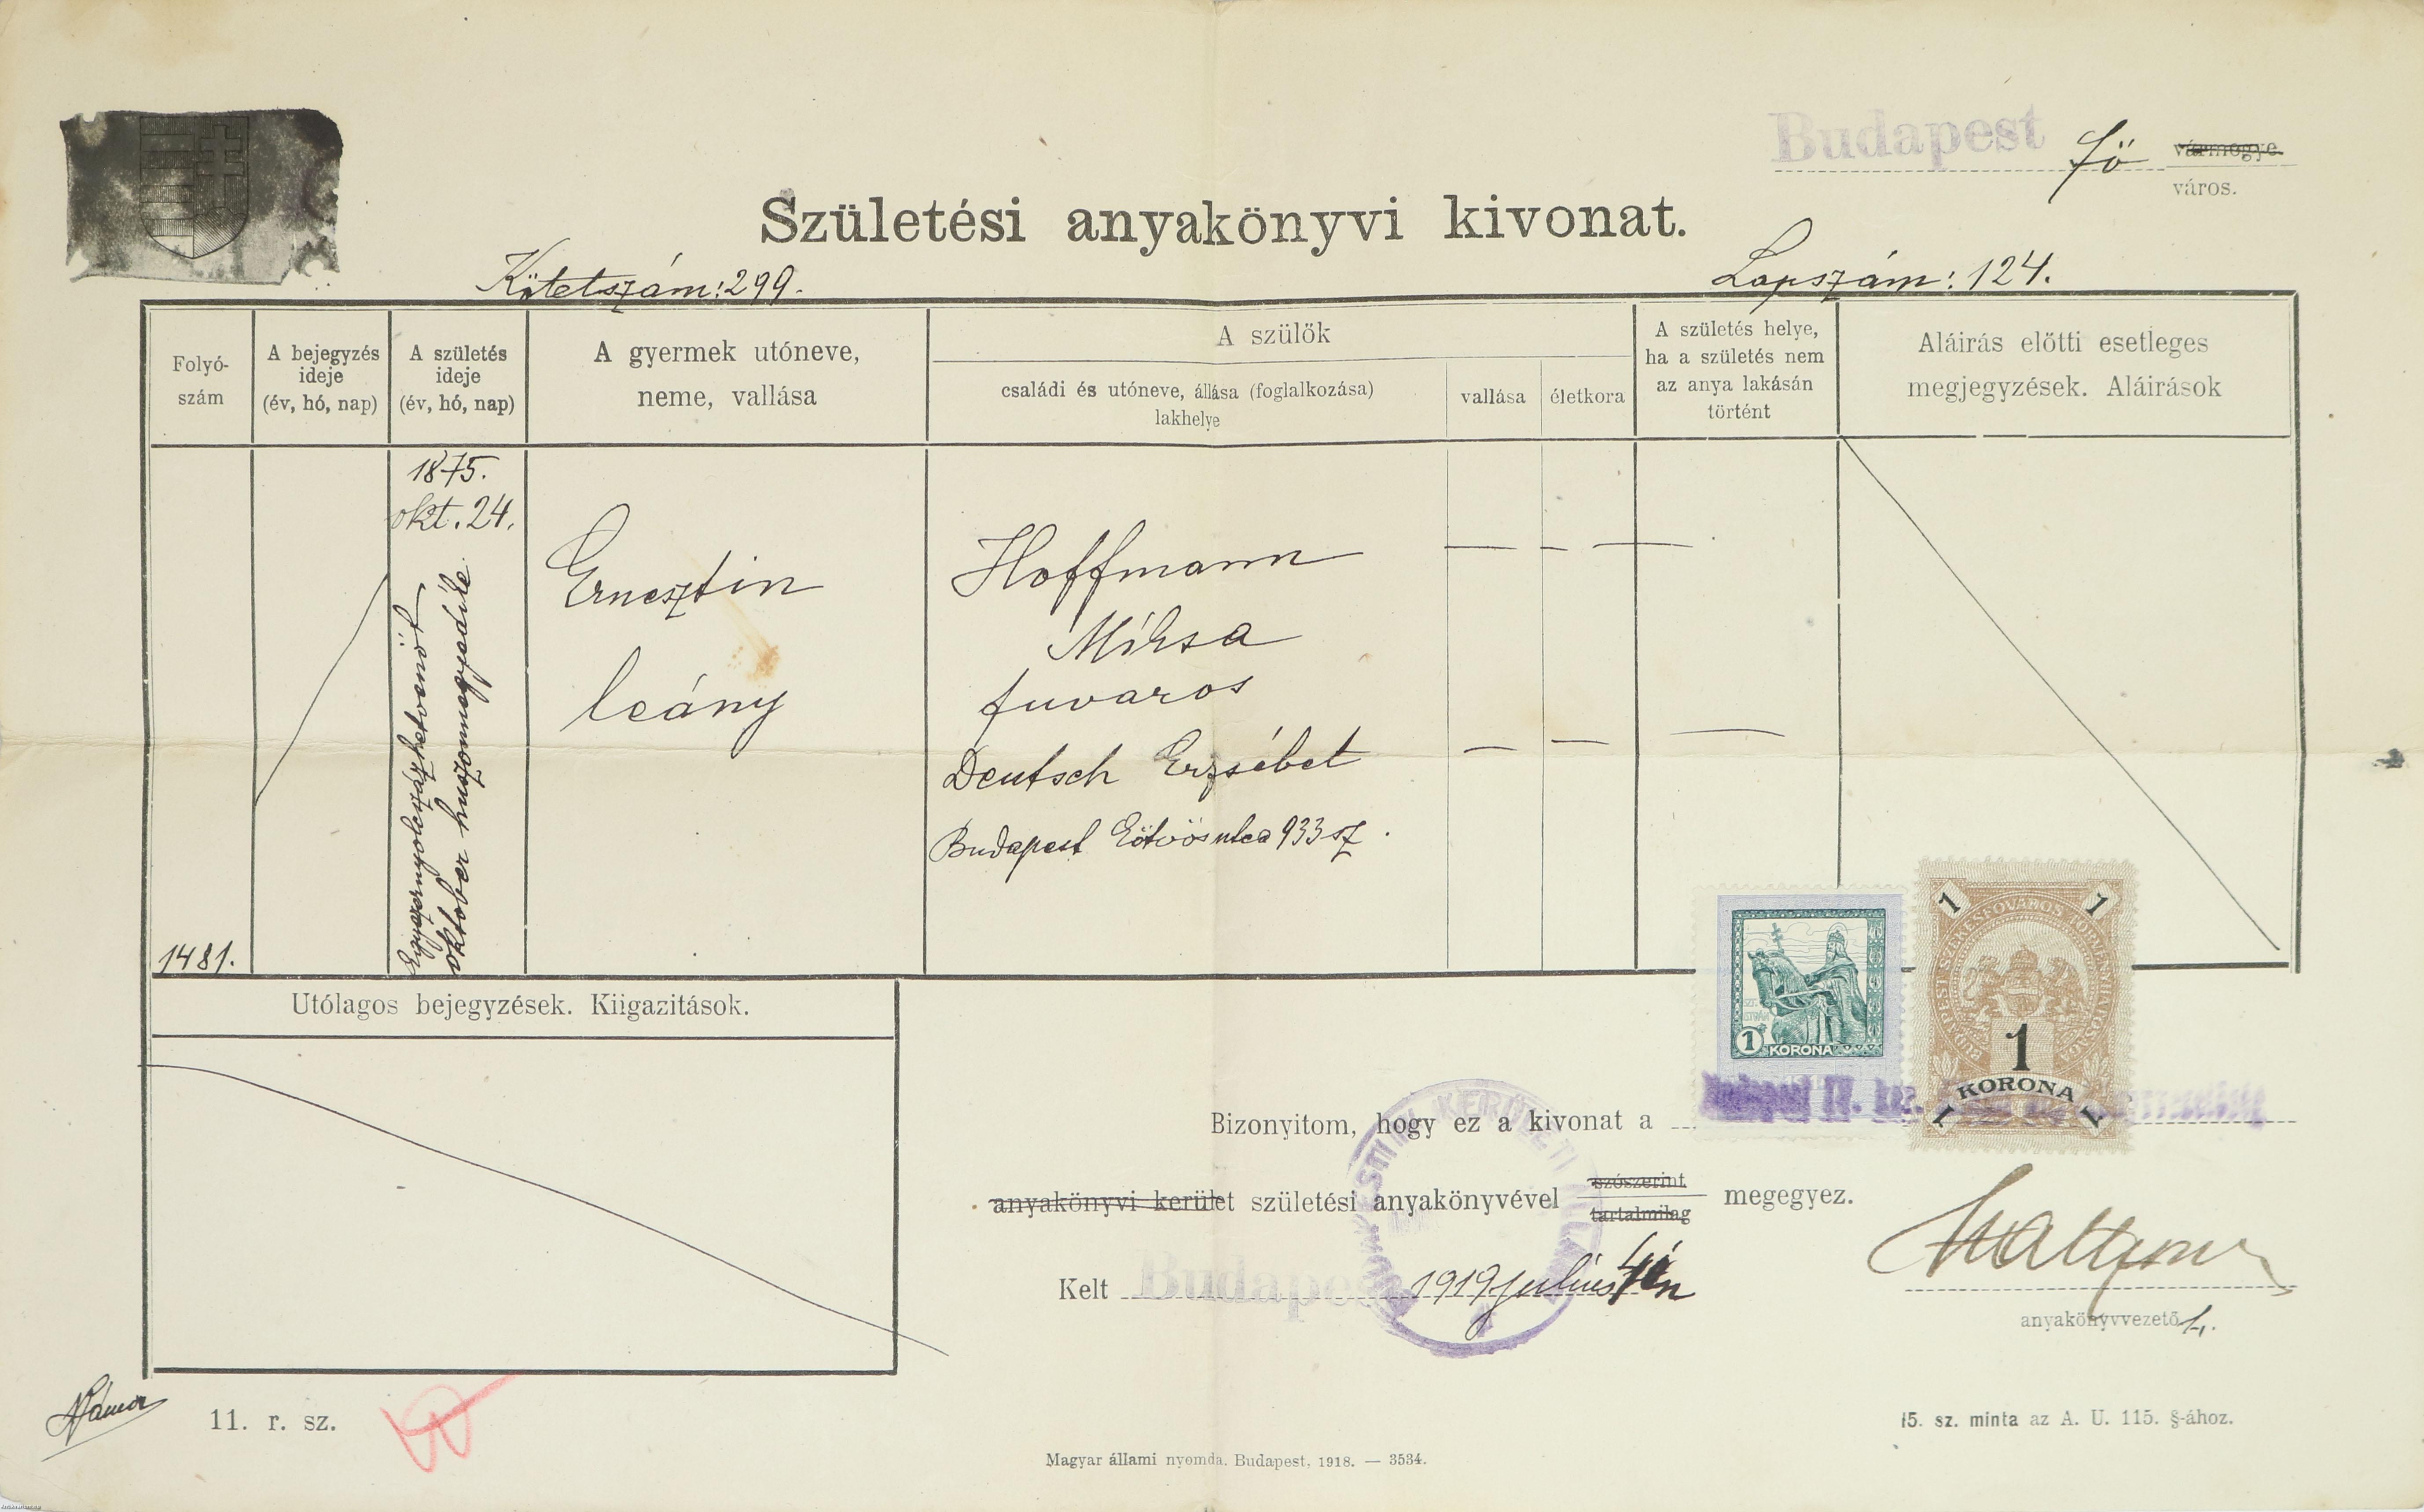 Budapest fő vármegye.
város.
Születési anyakönyvi kivonat.
Kötetszám: 299.
Lapszám: 124.
Folyó-
szám
A bejegyzés
ideje
(év, hó, nap)
A születés
ideje
(év, hó, nap)
A gyermek utóneve,
neme, vallása
A szülők
családi és utóneve, állása (foglalkozása)
lakhelye
vallása
életkora
A születés helye,
ha a születés nem
az anya lakásán
történt
Aláirás előtti esetleges
megjegyzések. Aláirások
1481.
1875.
okt. 24.
Egyezernyolcszázhetvenöt
október huszonnegyedike
Ernesztin
leány
Hoffmann
Miksa
fuvaros
Deutsch Erzsébet
Budapest Eötvös utca 933 sz.
Utólagos bejegyzések. Kiigazitások.
SZT. ISTVÁN
1 KORONA
1 1
BUDAPEST SZÉKESFŐVÁROS TÖRVÉNYHATÓSÁGA
1
KORONA
1 1
Bizonyitom, hogy ez a kivonat a
anyakönyvi kerület születési anyakönyvével szószerint megegyez.
tartalmilag
Kelt Budapest 1919 julius 4én
anyakönyvvezető h.
11. r. sz.
15. sz. minta az A. U. 115. §-ához.
Magyar állami nyomda. Budapest, 1918. — 3534.